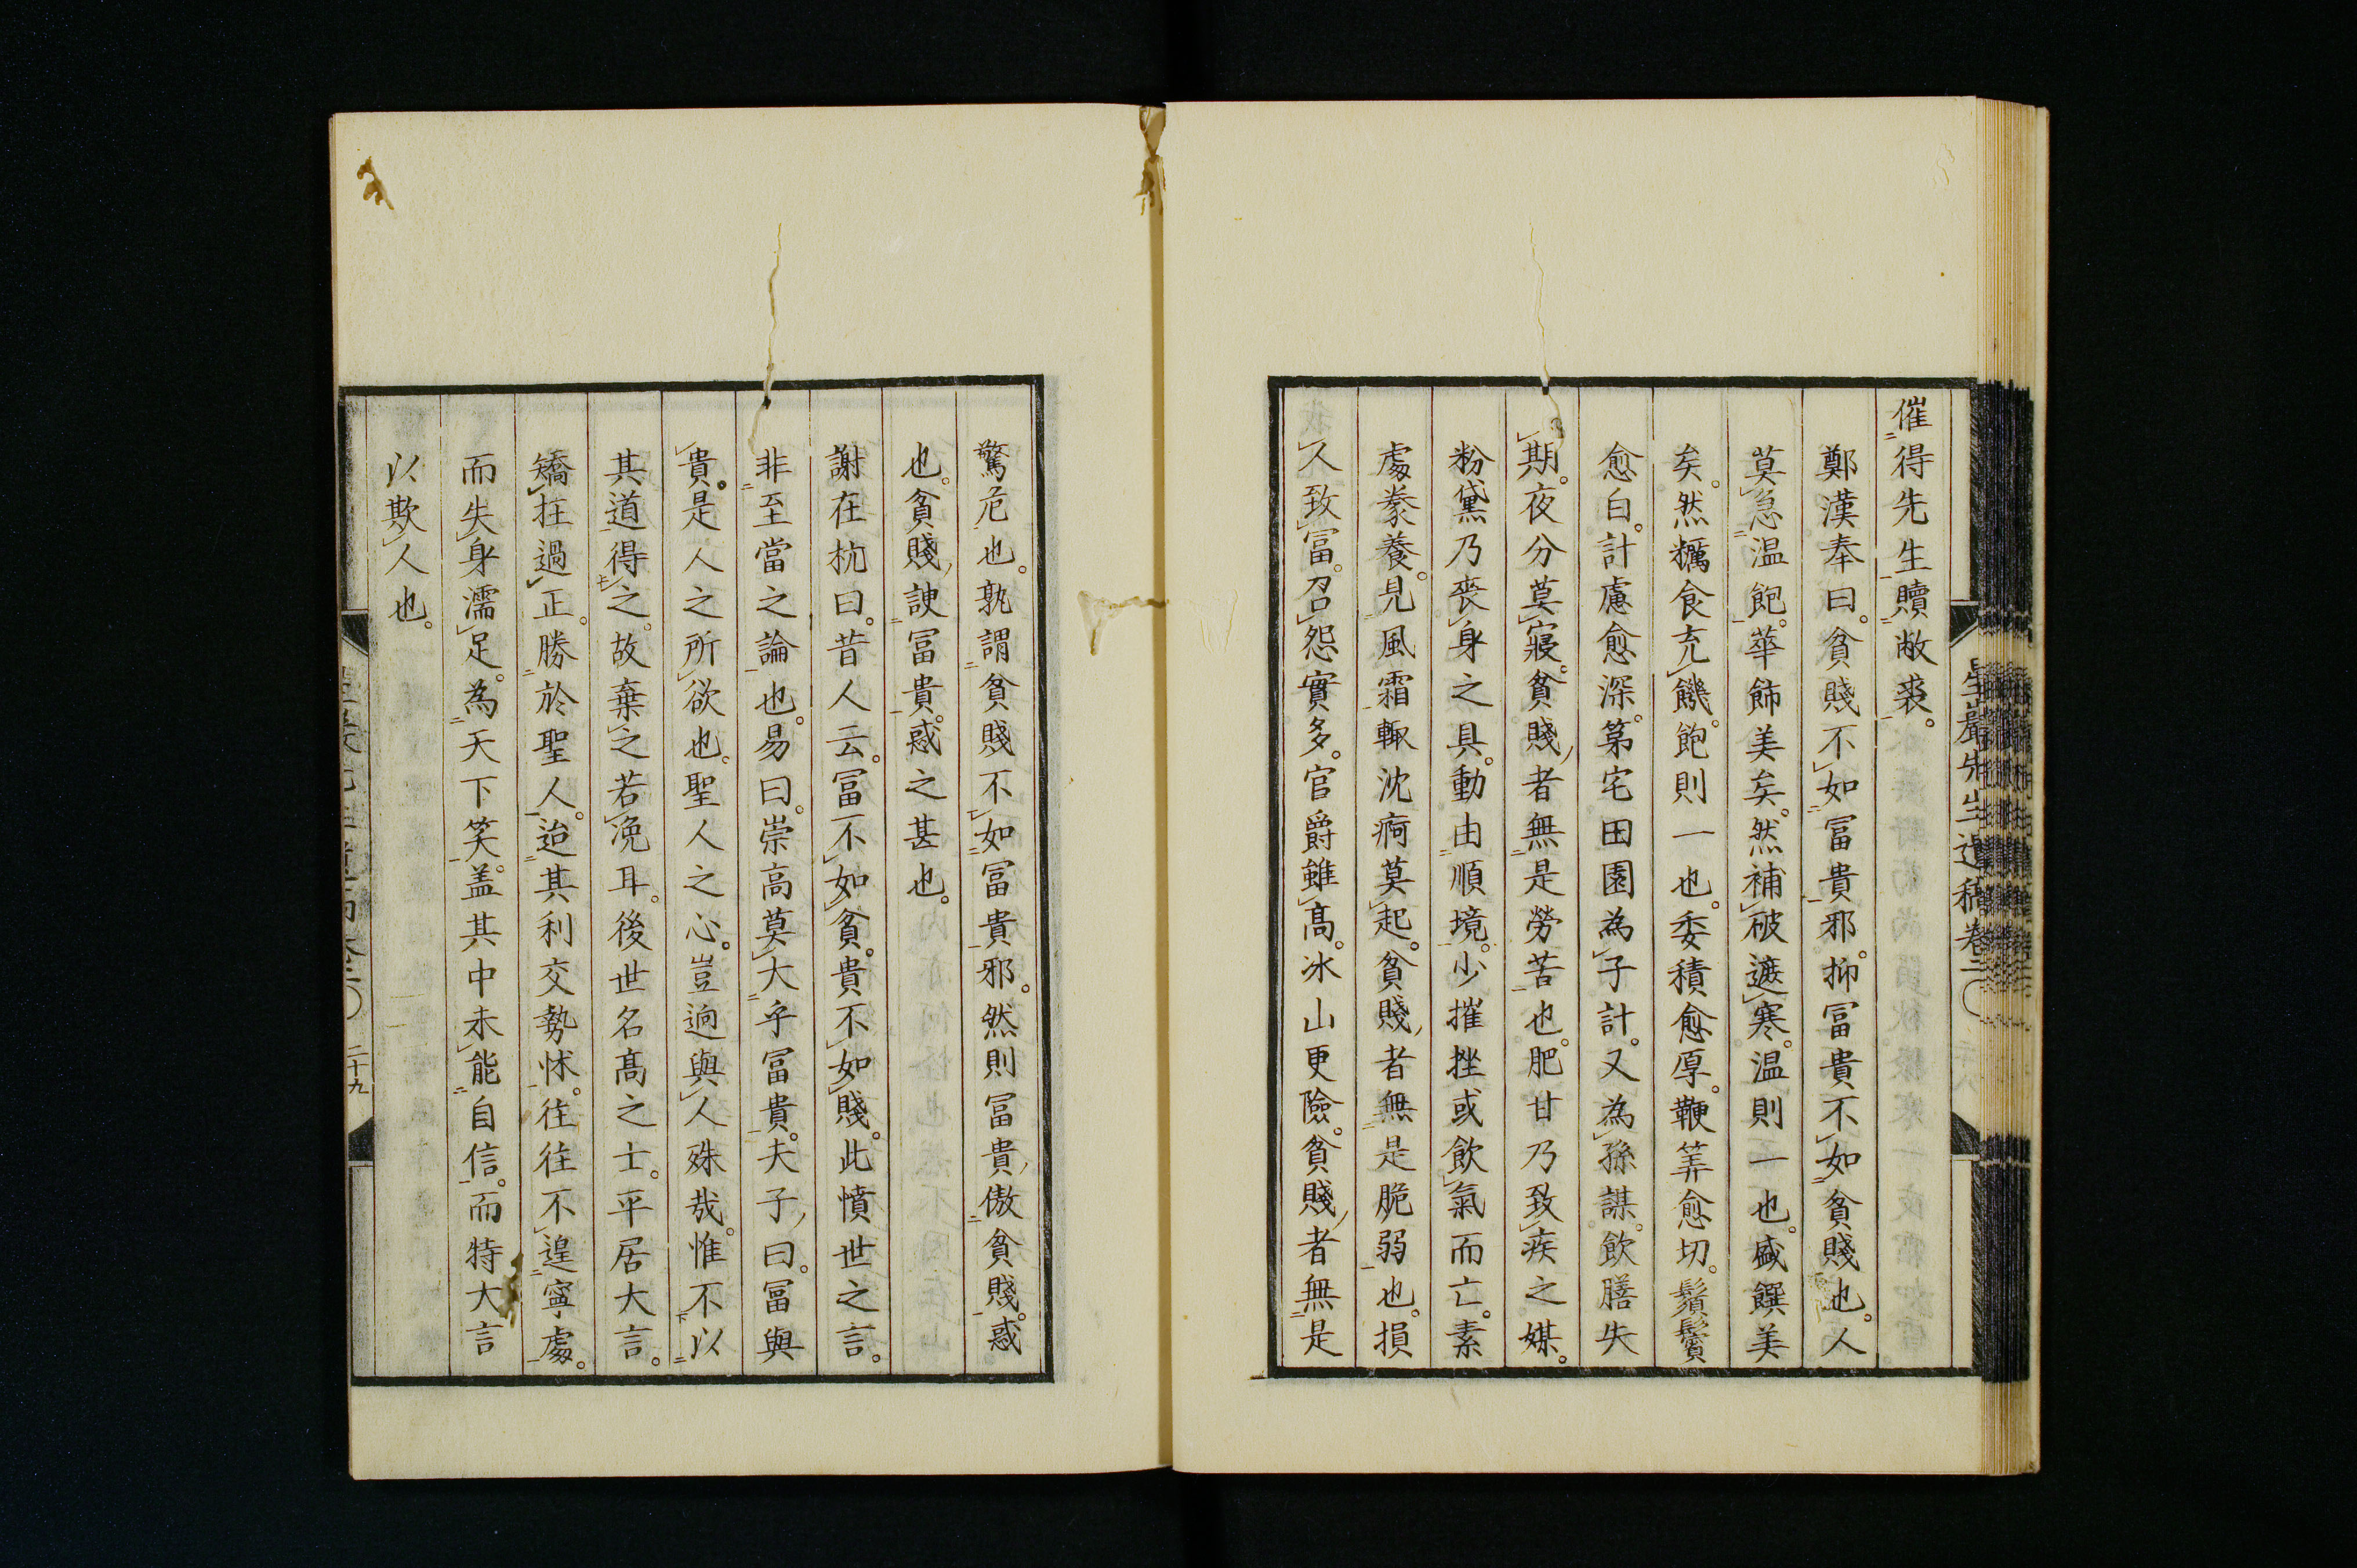 催得先生贖敝裘。
鄭漢奉曰。貧賤不如冨貴邪。抑冨貴不如貧賤也。人
莫急温飽。華飾美矣。然補破遮寒。温則一也。盛饌美
矣。然糲食充饑。飽則一也。委積愈厚。鞭筭愈切。鬚鬢
愈白。計慮愈深。第宅田園為子計。又為孫謀。飲膳失
期。夜分莫寢。貧賤者無是勞苦也。肥甘乃致疾之媒。
粉黛乃喪身之具。動由順境。少摧挫或飲氣而亡。素
處豢養。見風霜輙沈痾莫起。貧賤者無是脆弱也。損
人致冨。召怨實多。官爵雖髙。冰山更險。貧賤者無是
驚危也。孰謂貧賤不如冨貴邪。然則冨貴傲貧賤。惑
也。貧賤諛冨貴。惑之甚也。
謝在杭曰。昔人云。冨不如貧。貴不如賤。此憤世之言。
非至當之論也。易曰。崇高莫大乎冨貴。夫子曰。冨與
貴。是人之所欲也。聖人之心。豈逈與人殊哉。惟不以
其道得之。故棄之若浼耳。後世名髙之士。平居大言。
矯抂過正。勝於聖人。迨其利交勢怵。往往不遑寧處。
而失身濡足。為天下笑。盖其中未能自信。而特大言
以欺人也。
星巖先生遺稿卷二
二十九